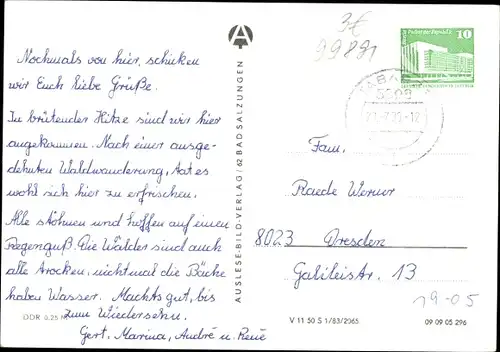 Nochmals von hier, schicken
wir Euch liebe Grüße.
In brütender Hitze sind wir hier
angekommen. Nach einer ausge-
dehnten Waldwanderung, tat es
wohl sich hier zu erfrischen.
Alle stöhnen und hoffen auf einen
Regenguß. Die Wälder sind auch
alle trocken. nicht mal die Bäche
haben Wasser. Machts gut, bis
zum Wiedersehn.
Gert, Marina, André u. René
DDR 0,25 M
A
AUSLESE-BILD-VERLAG / 62 BAD SALZUNGEN
3€
99891
Palast der Republik
10
TABARZ
5808
-12
Fam.
Raede Werner
8023 Dresden
Galileistr. 13
19-05
V 11 50 S 1/83/2065
09 09 05 296